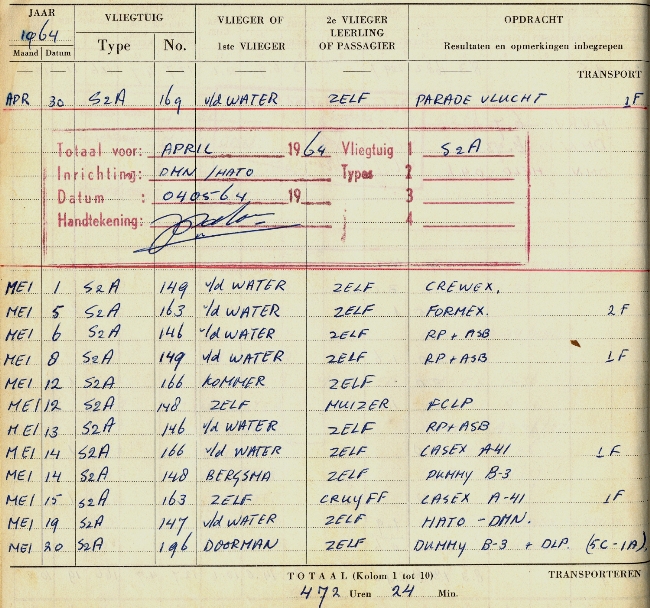 JAAR VLIEGTUIG VLIEGER OF 2e VLIEGER OPDRACHT
1964 LEERLING
Maand Datum Type No. 1ste VLIEGER OF PASSAGIER Resultaten en opmerkingen inbegrepen
TRANSPORT
APR 30 S2A 169 v/d WATER ZELF PARADE VLUCHT 1F
Totaal voor: APRIL 1964 Vliegtuig 1 S2A
Inrichting: DMN / HATO Types 2
Datum : 040564 19 3
Handtekening: 4
MEI 1 S2A 149 v/d WATER ZELF CREWEX.
MEI 5 S2A 163 v/d WATER ZELF FORMEX. 2F
MEI 6 S2A 146 v/d WATER ZELF RP + ASB
MEI 8 S2A 149 v/d WATER ZELF RP + ASB 1F
MEI 12 S2A 166 KOMMER ZELF
MEI 12 S2A 148 ZELF MUIZER FCLP
MEI 13 S2A 146 v/d WATER ZELF RP + ASB
MEI 14 S2A 166 v/d WATER ZELF CASEX A-41 1F
MEI 14 S2A 148 BERGSMA ZELF DUMMY B-3
MEI 15 S2A 163 ZELF CRUYFF CASEX A-41 1F
MEI 19 S2A 147 v/d WATER ZELF HATO - DMN.
MEI 20 S2A 196 DOORMAN ZELF DUMMY B-3 + DLP. (5C-1A)
TOTAAL (Kolom 1 tot 10) TRANSPORTEREN
472 Uren 24 Min.